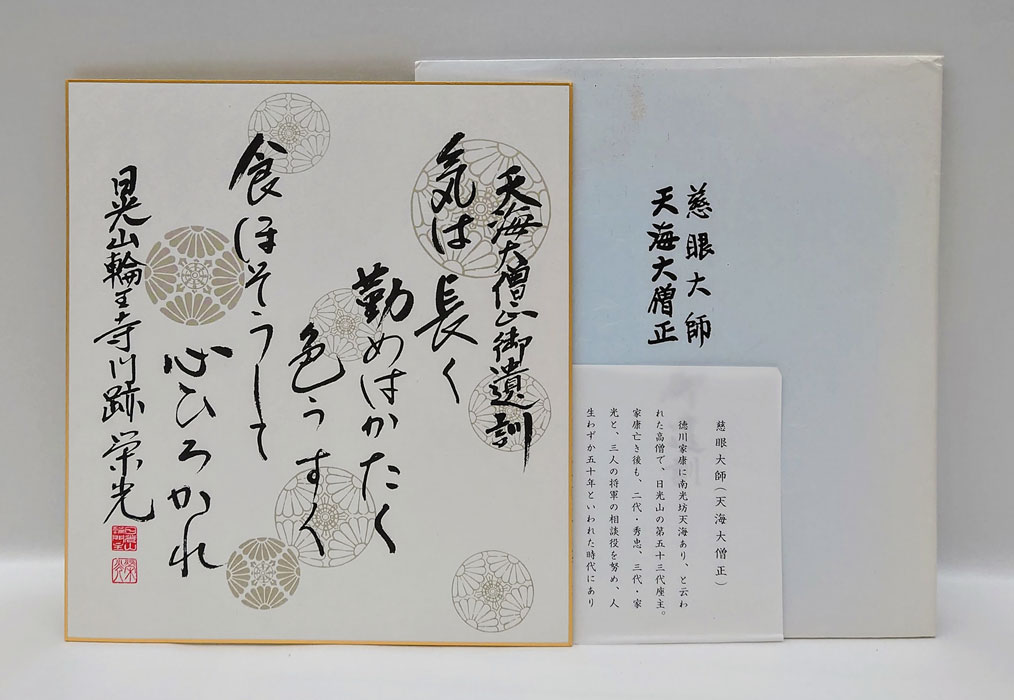 天海大僧正御遺訓
気は長く
勤めはかたく
色うすく
食ほそうして
心ひろかれ
日光山輪王寺門跡 栄光
慈眼大師
天海大僧正
慈眼大師(天海大僧正)
徳川家康に南光坊天海あり、と云わ
れた高僧で、日光山の第五十三代座主。
家康亡き後も、二代・秀忠、三代・家
光と、三人の将軍の相談役を努め、人
生わずか五十年といわれた時代にあり